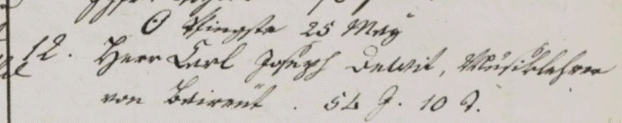 ☉ Pfingste 25 May
12. Herr Carl Joseph Dewit, Musiklehrer
von Beireut. 54 J. 10 T.